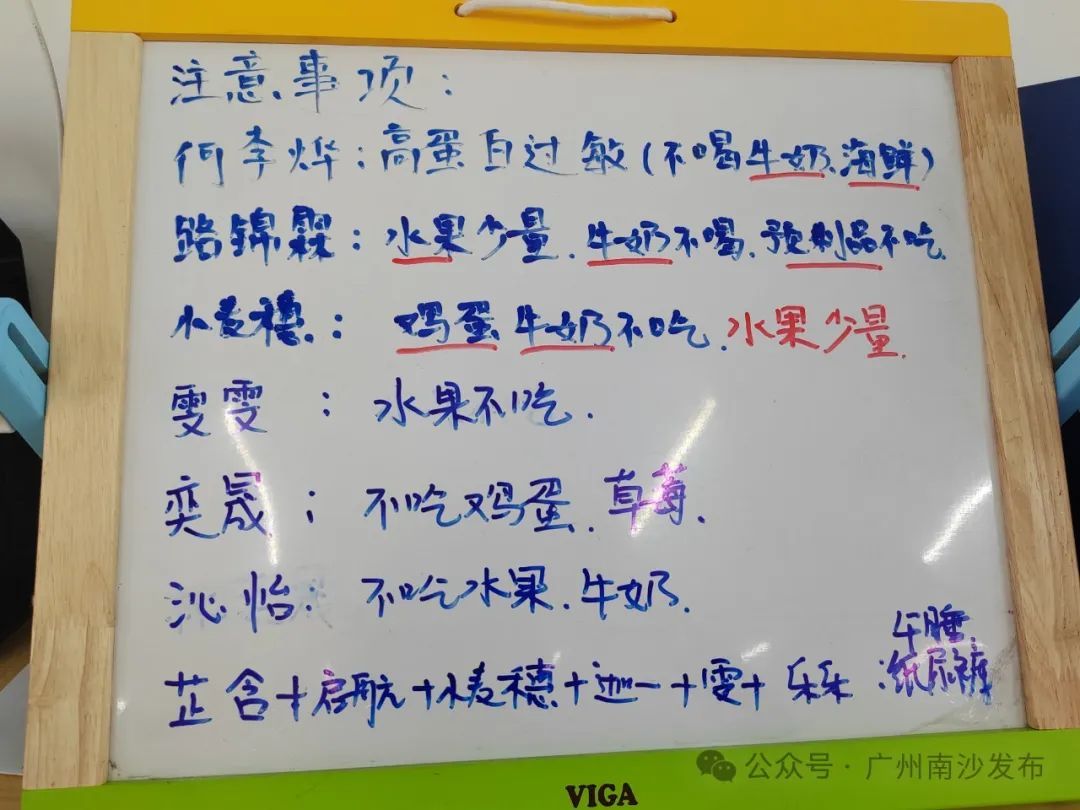 注意事项:
何李烨:高蛋白过敏(不喝牛奶、海鲜)
路锦霖:水果少量、牛奶不喝、预制品不吃
小麦穗:鸡蛋、牛奶不吃、水果少量.
雯雯:水果不吃.
奕晟:不吃鸡蛋、草莓.
沁怡:不吃水果、牛奶.
芷含+启航+小麦穗+迦一+雯+乐乐:午睡、纸尿裤
公众号·广州南沙发布
VIGA